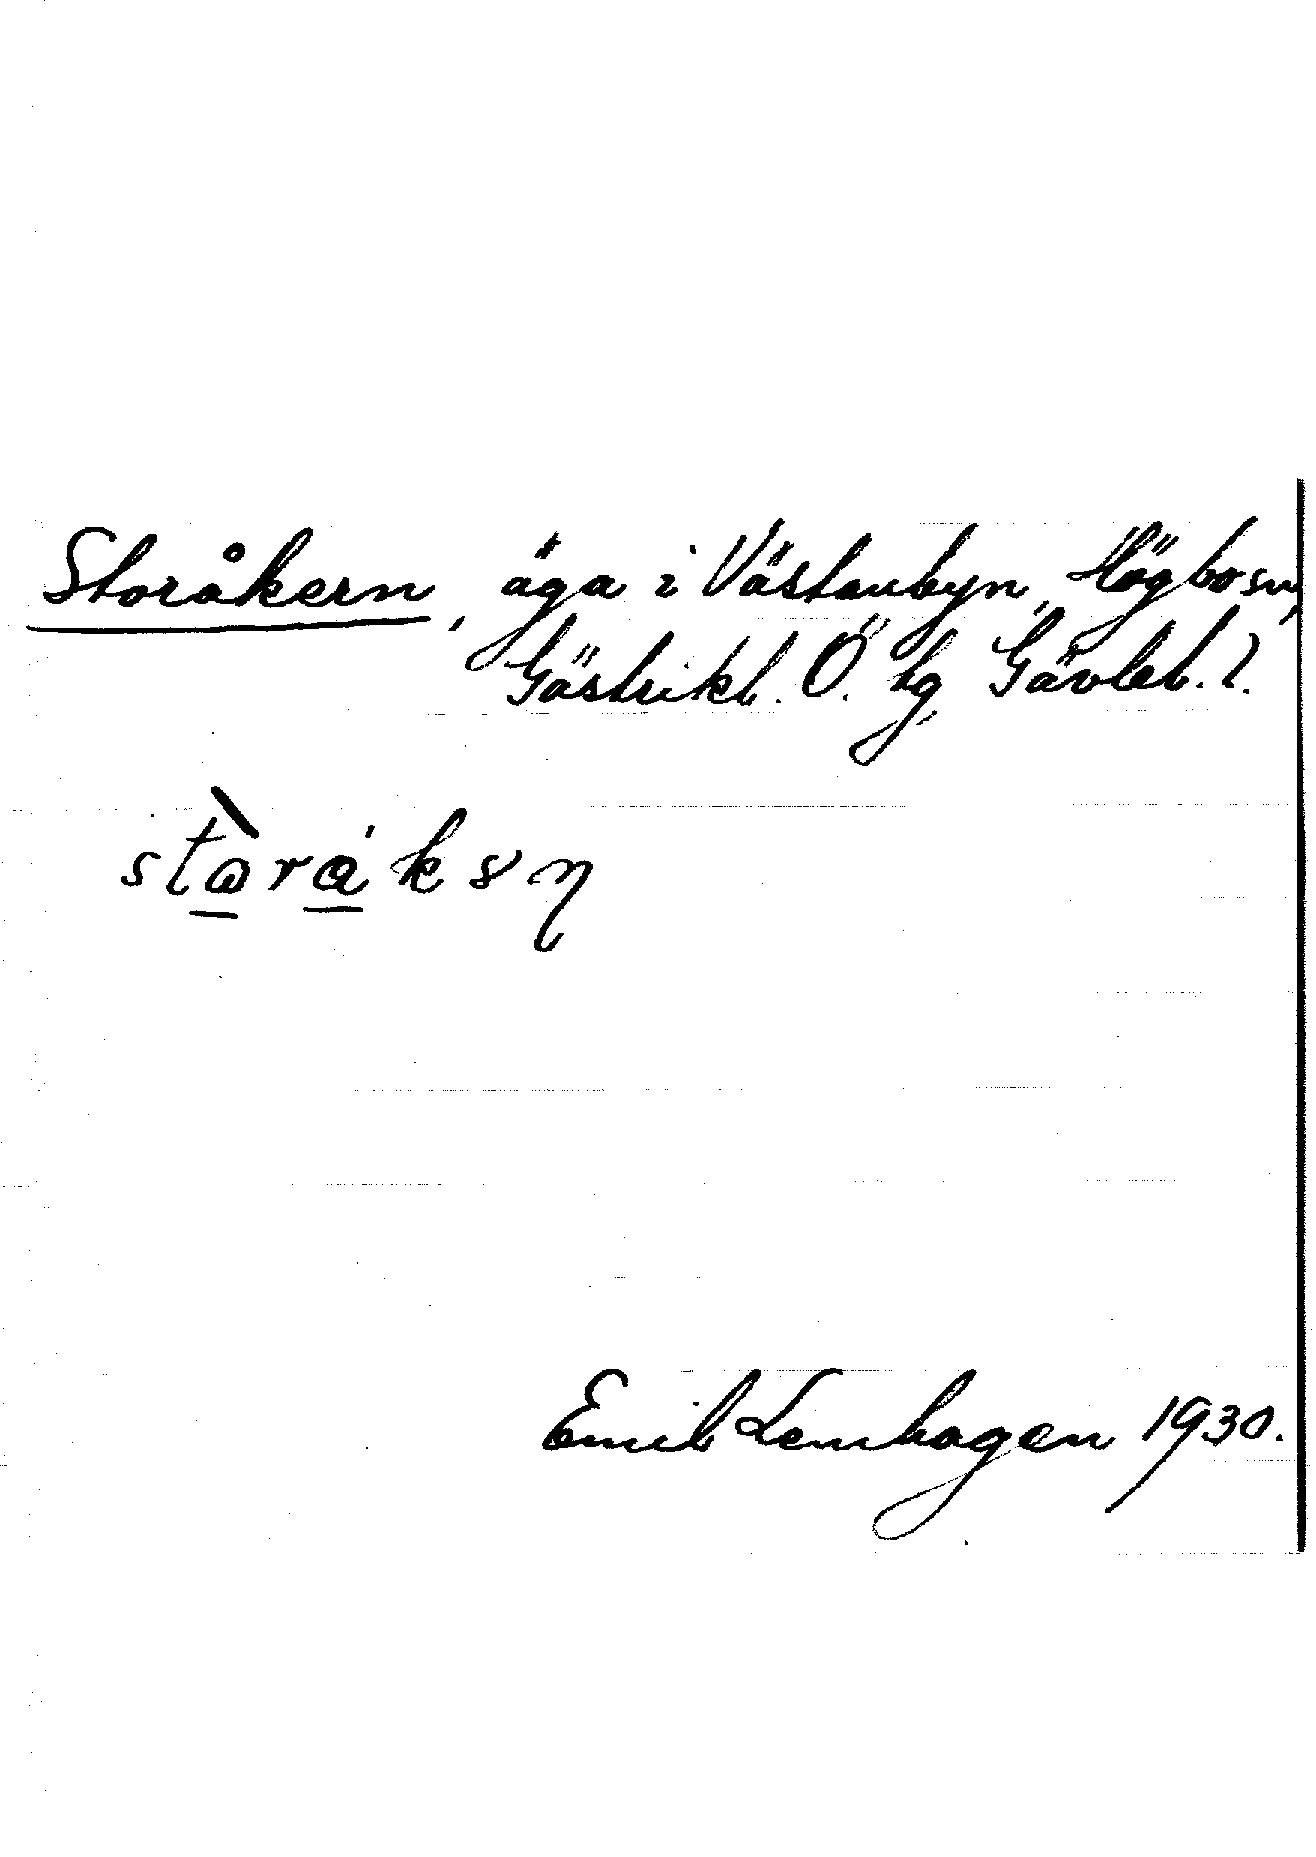 Storåkern, äga i Västanbyn, Högbo sn,
Gästrikl. Ö. tg, Gävleb. l.
Emil Lenhagen 1930.